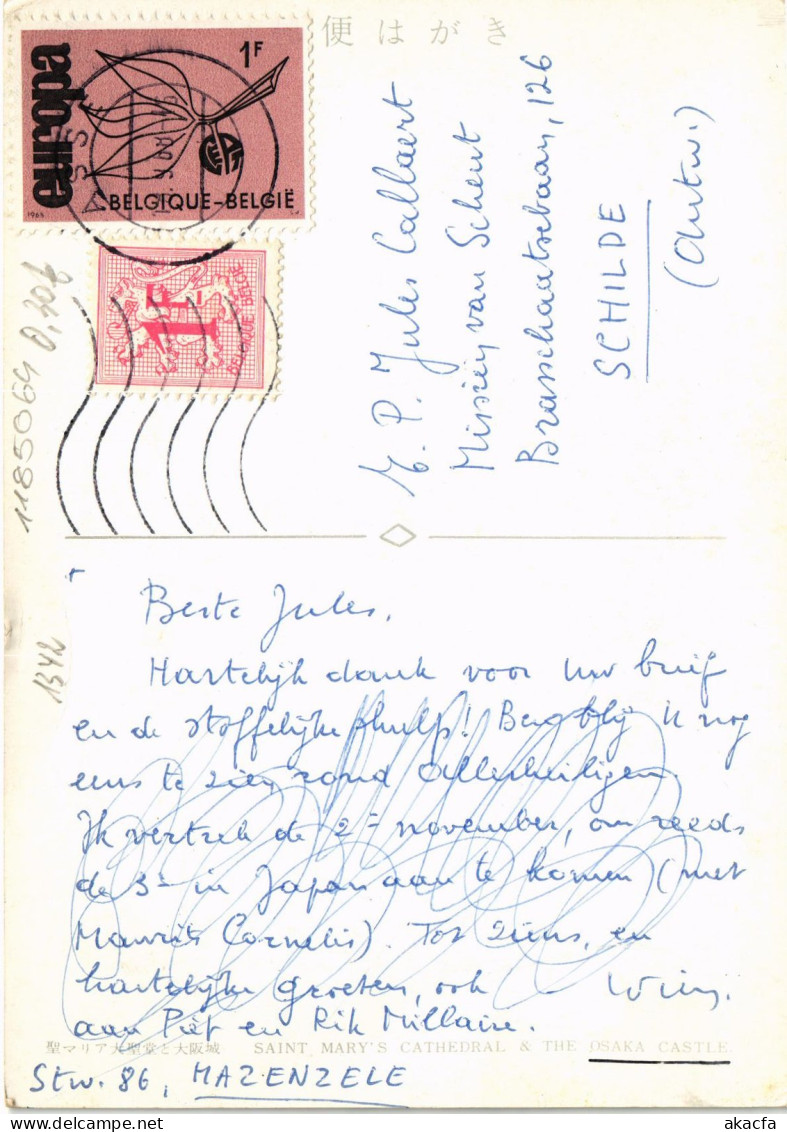 便はがき
europa
1F
BELGIQUE-BELGIË
1965
ASSE
1F
BELGIQUE BELGIE
1185064 0,20 €
1342
E. P. Jules Callaert
Missiën van Scheut
Brasschaatsebaan, 126
SCHILDE
(Antw.)
Beste Jules,
Hartelijk dank voor uw brief
en de stoffelijke hulp! Ben blij U nog
eens te zien rond Allerheiligen.
Ik vertrek de 2e november, om reeds
de 3e in Japan aan te komen (met
Maurits Cornelis). Tot ziens, en
hartelijke groeten, ook
aan Piet en Rik Millaire.
Wim.
聖マリア大聖堂と大阪城 SAINT MARY'S CATHEDRAL & THE OSAKA CASTLE.
Stw. 86, MAZENZELE
akacfa